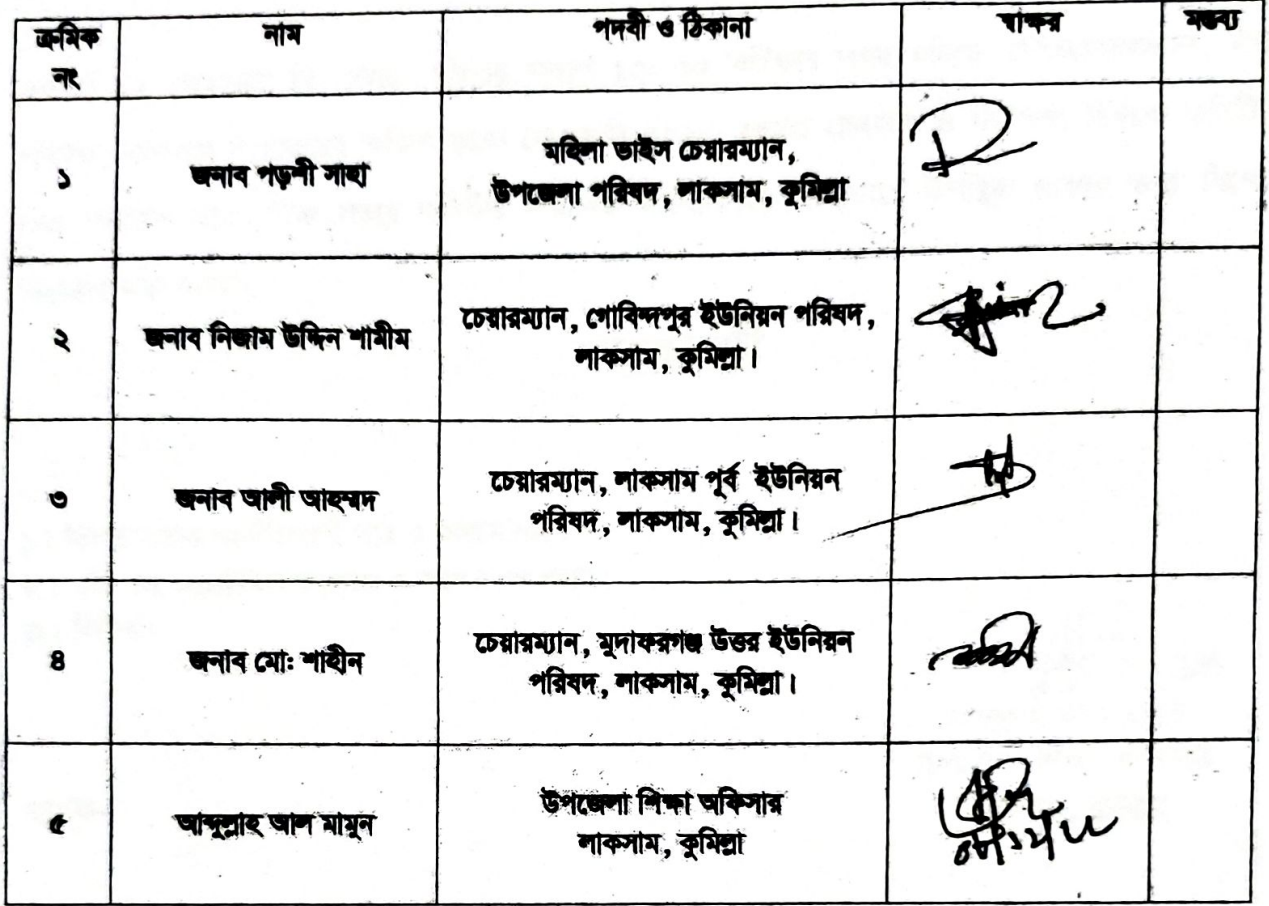 ক্রমিক নং নাম পদবী ও ঠিকানা স্বাক্ষর মন্তব্য
১ জনাব পড়শী সাহা মহিলা ভাইস চেয়ারম্যান,
উপজেলা পরিষদ, লাকসাম, কুমিল্লা
২ জনাব নিজাম উদ্দিন শামীম চেয়ারম্যান, গোবিন্দপুর ইউনিয়ন পরিষদ,
লাকসাম, কুমিল্লা।
৩ জনাব আলী আহম্মদ চেয়ারম্যান, লাকসাম পূর্ব ইউনিয়ন
পরিষদ, লাকসাম, কুমিল্লা।
৪ জনাব মো: শাহীন চেয়ারম্যান, মুদাফরগঞ্জ উত্তর ইউনিয়ন
পরিষদ, লাকসাম, কুমিল্লা।
৫ আব্দুল্লাহ আল মামুন উপজেলা শিক্ষা অফিসার
লাকসাম, কুমিল্লা